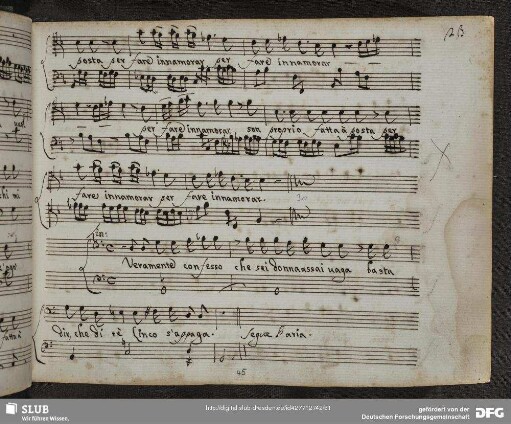 23
posta per fare innamorar per fare innamorar
per fare innamorar son proprio fatta à posta per
fare innamorar per fare innamorar.
Veramente confesso che sei donna assai vaga basta
dir, che di tè Linco s'appaga. Segue l'aria.
45
SLUB
Wir führen Wissen.
gefördert von der
Deutschen Forschungsgemeinschaft
DFG